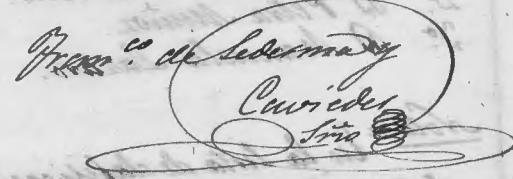 Fran.co de Ledesma y
Caviedes
Srio